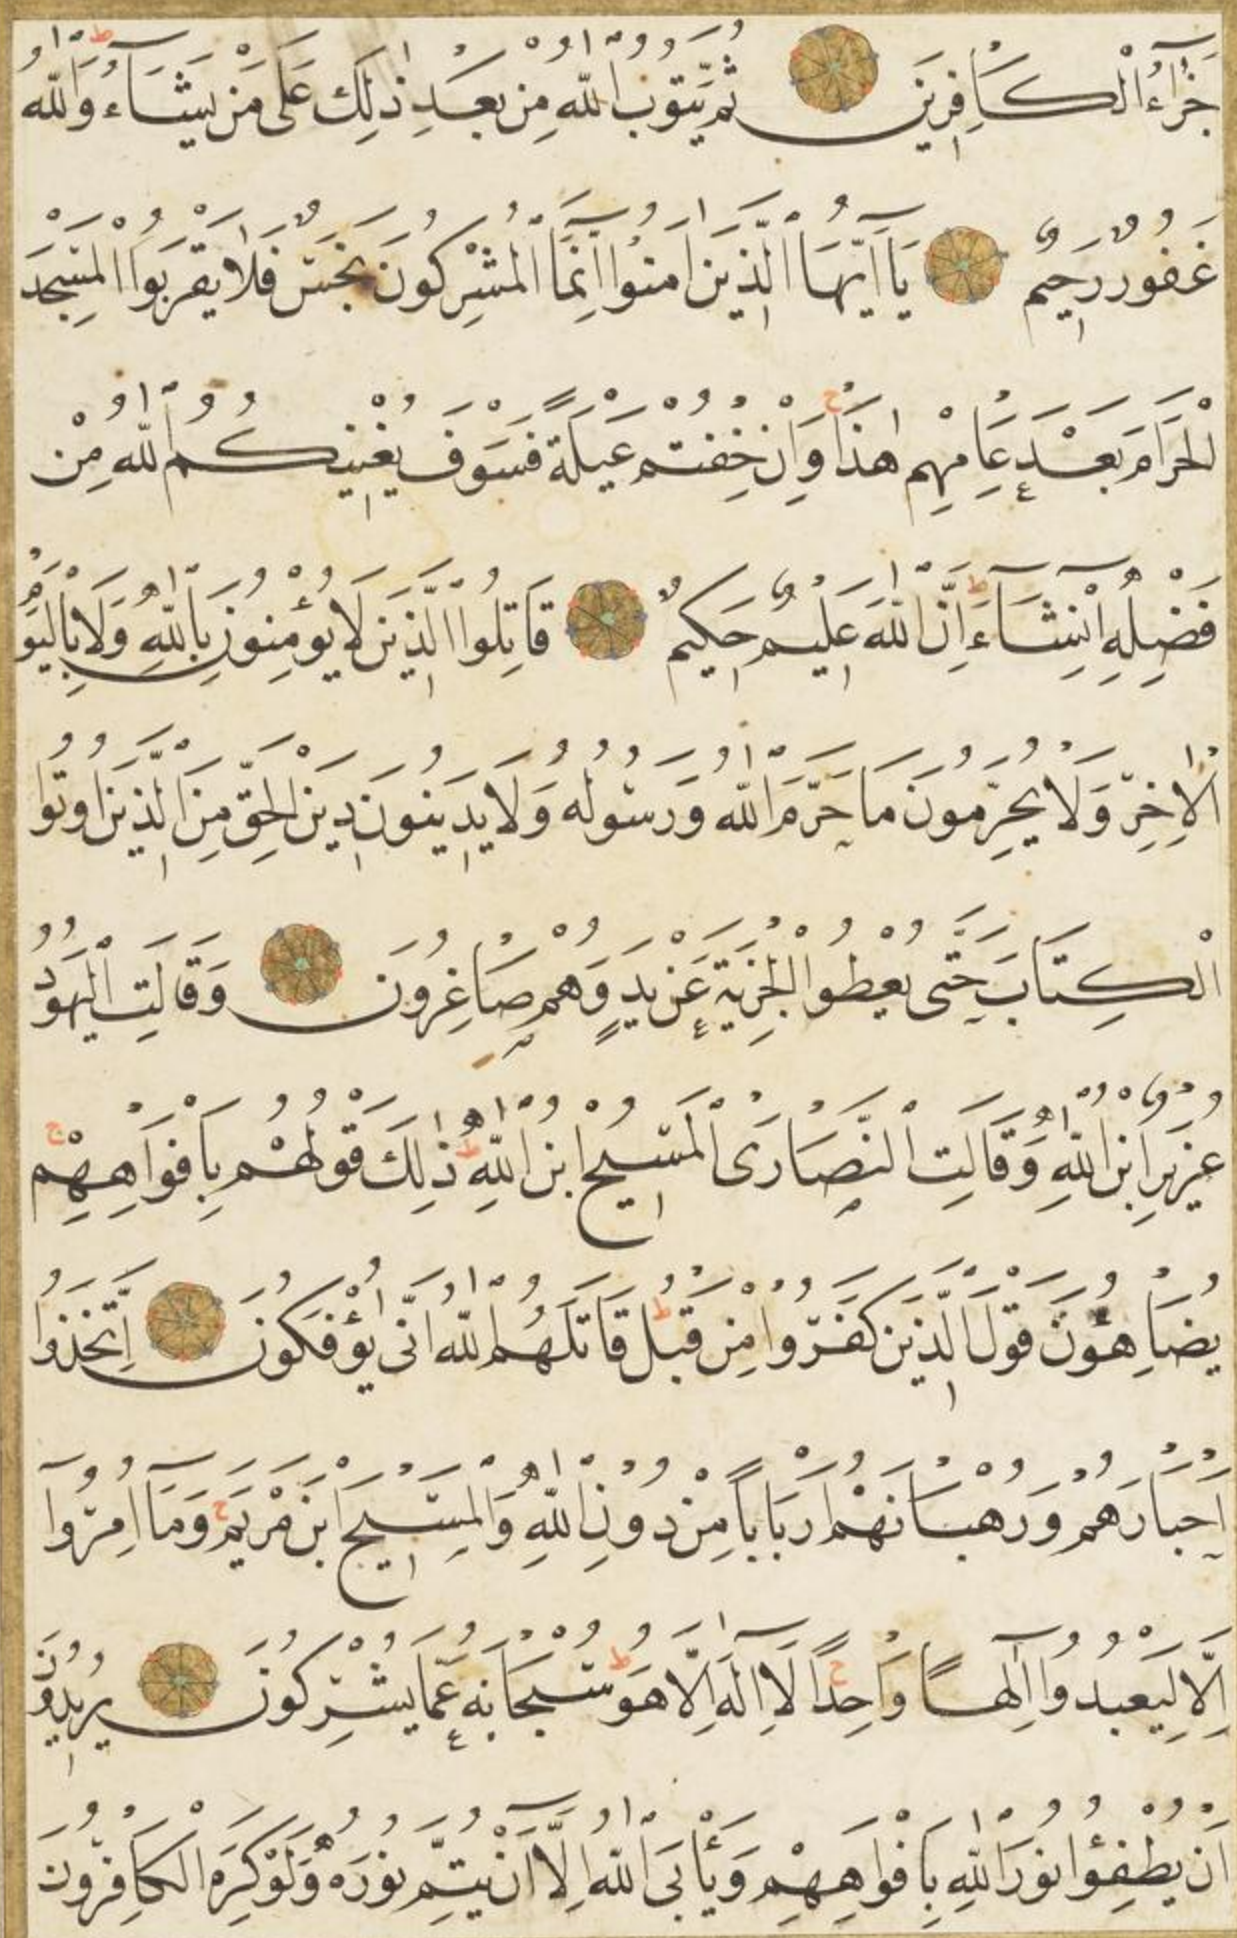 جَزَاءُ الْكَافِرِينَ ثُمَّ يَتُوبُ اللّٰهُ مِنْ بَعْدِ ذٰلِكَ عَلٰى مَنْ يَشَاءُ ط وَاللّٰهُ
غَفُورٌ رَحِيمٌ يَا اَيُّهَا الَّذِينَ اٰمَنُوا اِنَّمَا الْمُشْرِكُونَ نَجَسٌ فَلَا يَقْرَبُوا الْمَسْجِدَ
الْحَرَامَ بَعْدَ عَامِهِمْ هٰذَا ج وَاِنْ خِفْتُمْ عَيْلَةً فَسَوْفَ يُغْنِيكُمُ اللّٰهُ مِنْ
فَضْلِهِ اِنْ شَاءَ ط اِنَّ اللّٰهَ عَلِيمٌ حَكِيمٌ قَاتِلُوا الَّذِينَ لَا يُؤْمِنُونَ بِاللّٰهِ وَلَا بِالْيَوْمِ
الْاٰخِرِ وَلَا يُحَرِّمُونَ مَا حَرَّمَ اللّٰهُ وَرَسُولُهُ وَلَا يَدِينُونَ دِينَ الْحَقِّ مِنَ الَّذِينَ اُوتُوا
الْكِتَابَ حَتّٰى يُعْطُوا الْجِزْيَةَ عَنْ يَدٍ وَهُمْ صَاغِرُونَ وَقَالَتِ الْيَهُودُ
عُزَيْرٌ ابْنُ اللّٰهِ وَقَالَتِ النَّصَارَى الْمَسِيحُ ابْنُ اللّٰهِ ط ذٰلِكَ قَوْلُهُمْ بِاَفْوَاهِهِمْ ج
يُضَاهِؤُنَ قَوْلَ الَّذِينَ كَفَرُوا مِنْ قَبْلُ ط قَاتَلَهُمُ اللّٰهُ اَنّٰى يُؤْفَكُونَ اِتَّخَذُوا
اَحْبَارَهُمْ وَرُهْبَانَهُمْ اَرْبَابًا مِنْ دُونِ اللّٰهِ وَالْمَسِيحَ ابْنَ مَرْيَمَ ج وَمَا اُمِرُوا
اِلَّا لِيَعْبُدُوا اِلٰهًا وَاحِدًا ج لَا اِلٰهَ اِلَّا هُوَ ط سُبْحَانَهُ عَمَّا يُشْرِكُونَ يُرِيدُونَ
اَنْ يُطْفِؤُا نُورَ اللّٰهِ بِاَفْوَاهِهِمْ وَيَأْبَى اللّٰهُ اِلَّا اَنْ يُتِمَّ نُورَهُ وَلَوْ كَرِهَ الْكَافِرُونَ